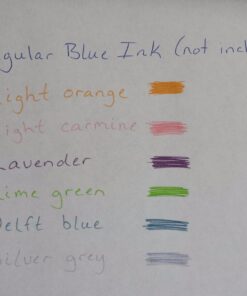 gular Blue Ink (not incl
ight orange
ight carmine
Lavender
Lime green
Delft blue
Silver grey